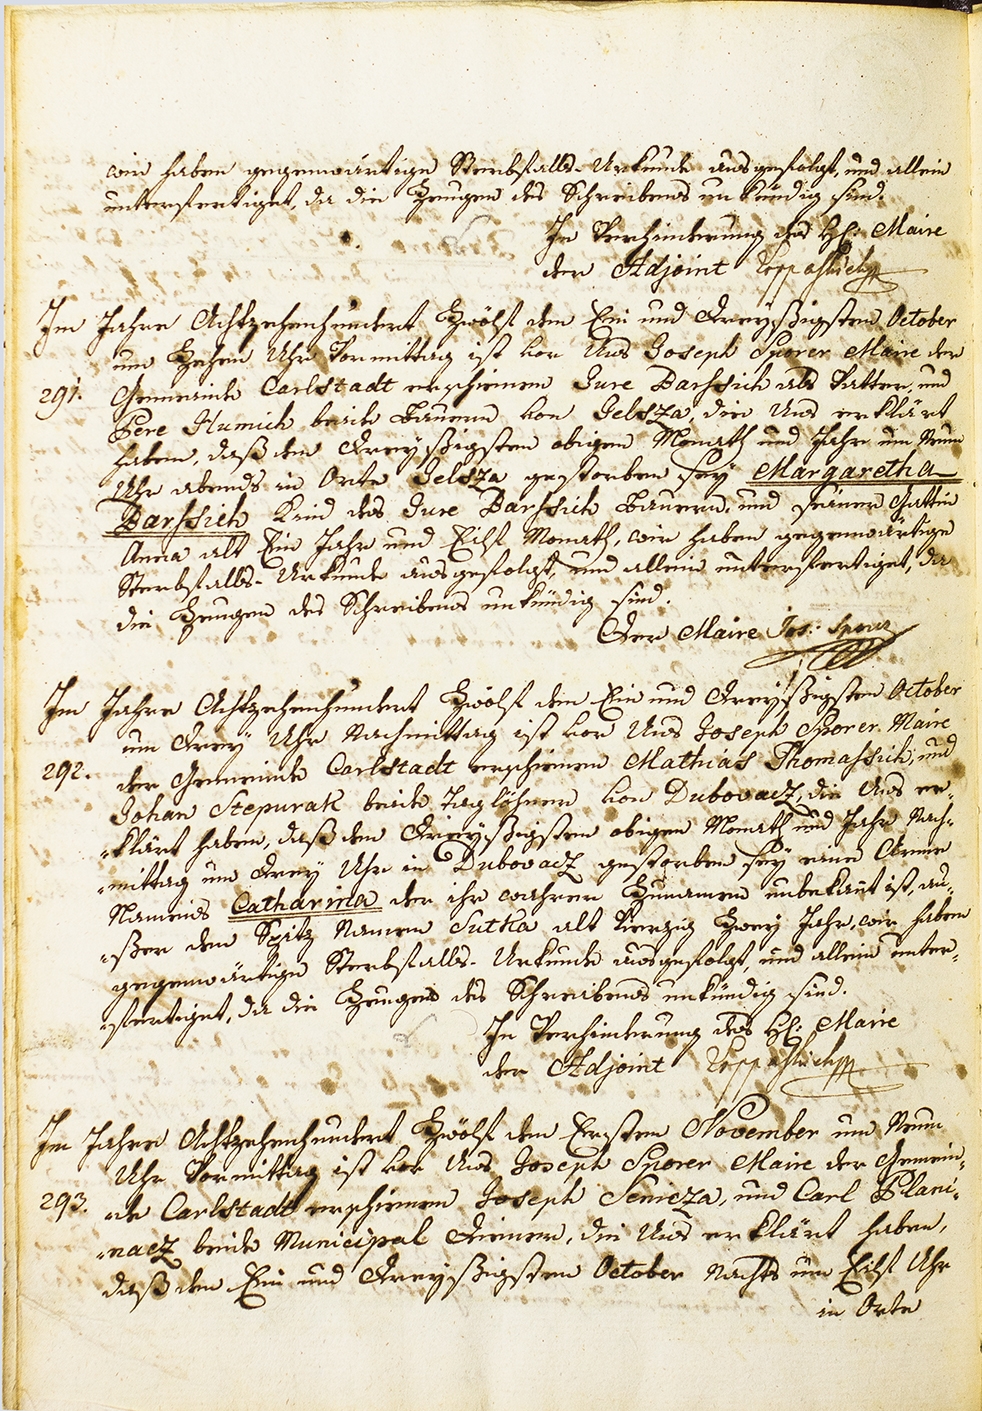 wir haben gegenwärtige Sterbfalls-Urkunde ausgefolgt, und allein
unterfertiget, da die Zeugen des Schreibens unkündig sind.
In Verhinderung des H: Maire
der Adjoint
Im Jahre Achtzehenhundert Zwölf den Ein und Dreyßigsten October
um Zehen Uhr Vormittag ist vor Uns Joseph Sporer Maire der
291. Gemeinde Carlstadt erschienen Jure Barssich als Vatter, und
Pere Humich beide Bauern von Jelsza, die Uns erklärt
haben, daß den Dreyßigsten obigen Monath und Jahr um Neun
Uhr abends in Orte Jelsza gestorben sey Margaretha
Barssich Kind des Jure Barssich Bauern, und seiner Gattin
Anna alt Ein Jahr und Eilf Monath, wir haben gegenwärtige
Sterbfalls-Urkunde ausgefolgt, und allein unterfertiget, da
die Zeugen des Schreibens unkündig sind.
Der Maire Jos: Sporer
Im Jahre Achtzehenhundert Zwölf den Ein und Dreyßigsten October
um Drey Uhr Nachmittag ist vor Uns Joseph Sporer Maire
292. der Gemeinde Carlstadt erschienen Mathias Thomassich, und
Johan Stepurak beide Taglöhner von Dubovacz, die Uns er-
-klärt haben, daß den Dreyßigsten obigen Monath und Jahr Nach-
-mittag um Drey Uhr in Dubovacz gestorben sey eine Arme
Namens Catharina der ihr wahrer Zunamen unbekant ist, au-
-ßer den Spitz Namen Sutka alt Vierzig Zwey Jahr, wir haben
gegenwärtige Sterbfalls-Urkunde ausgefolgt, und allein unter-
-fertiget, da die Zeugen des Schreibens unkündig sind.
In Verhinderung des H: Maire
der Adjoint
Im Jahre Achtzehenhundert Zwölf den Ersten November um Neun
Uhr Vormittag ist vor Uns Joseph Sporer Maire der Gemein-
293. -de Carlstadt erschienen Joseph Semeza, und Carl Plani-
-nacz beide Municipal Diener, die Uns erklärt haben,
daß den Ein und Dreyßigsten October Nachts um Eilf Uhr
in Orte